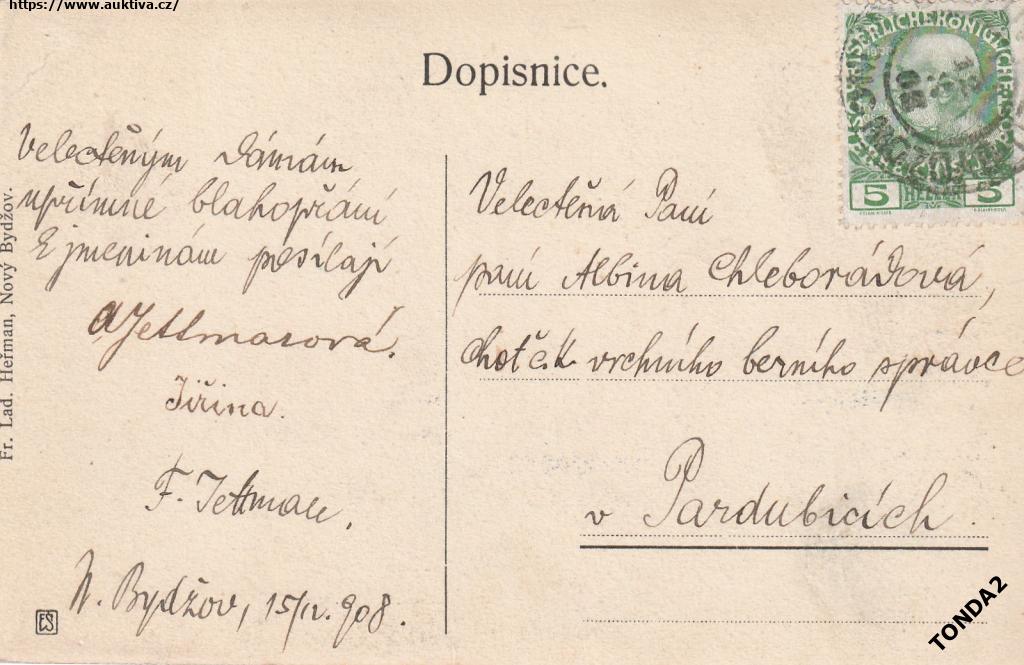 https://www.auktiva.cz/
Dopisnice.
Velectěným Dámám
upřímné blahopřání
K jmeninám posílají
AJettmarová.
Jiřina.
F. Jettmar,
N. Bydžov, 15/12. 908.
Velectěná Paní
paní Albina Chleborádová,
choť c.k. vrchního berního správce
v Pardubicích.
5 HELLER 5
Fr. Lad. Heřman, Nový Bydžov.
TONDA2